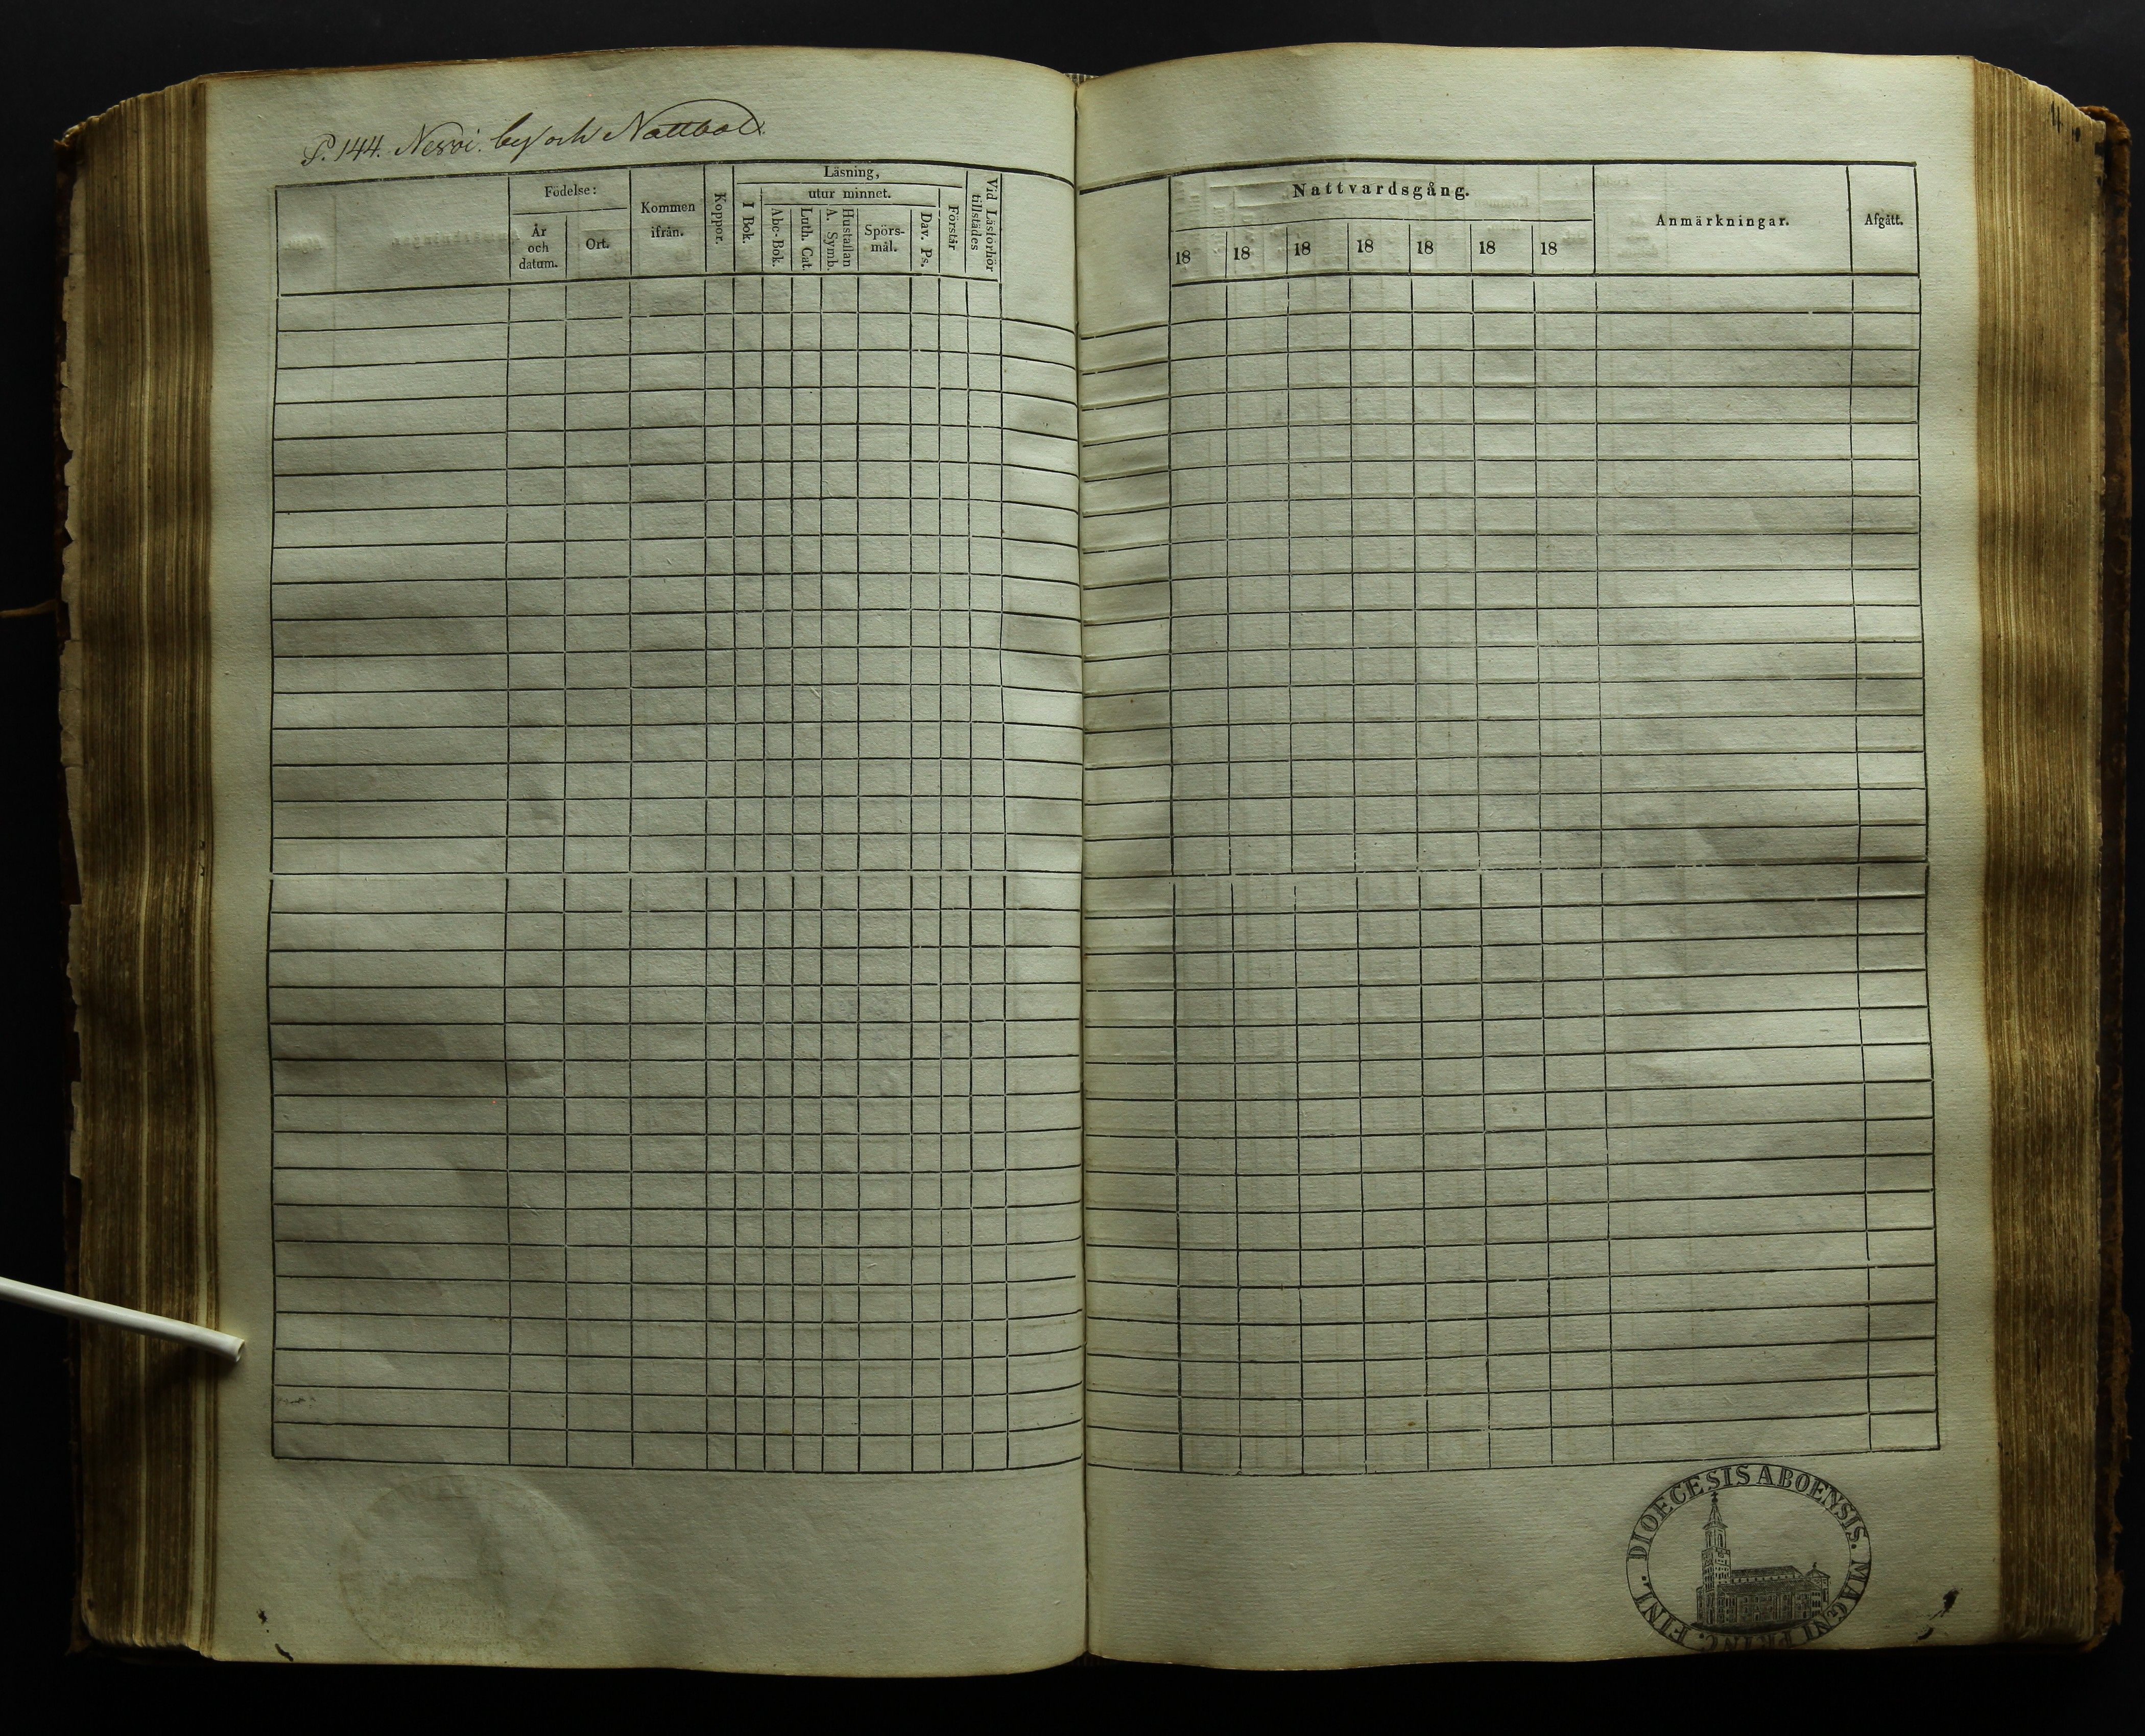 P. 144. Nesvi. by och Nattbol
Läsning,
Födelse:
utur minnet.
Kommen
ifrån.
Koppor.
I Bok.
Abc-Bok.
Luth. Cat.
Hustaflan
A. Symb.
Spörs-
mål.
Dav. Ps.
Förstår
Vid Läsförhör
tillstädes
År
och
datum.
Ort.
Nattvardsgång.
Anmärkningar.
Afgått.
18 18 18 18 18 18 18
DIOECESIS ABOENSIS. MAGNI PRINC. FINL.